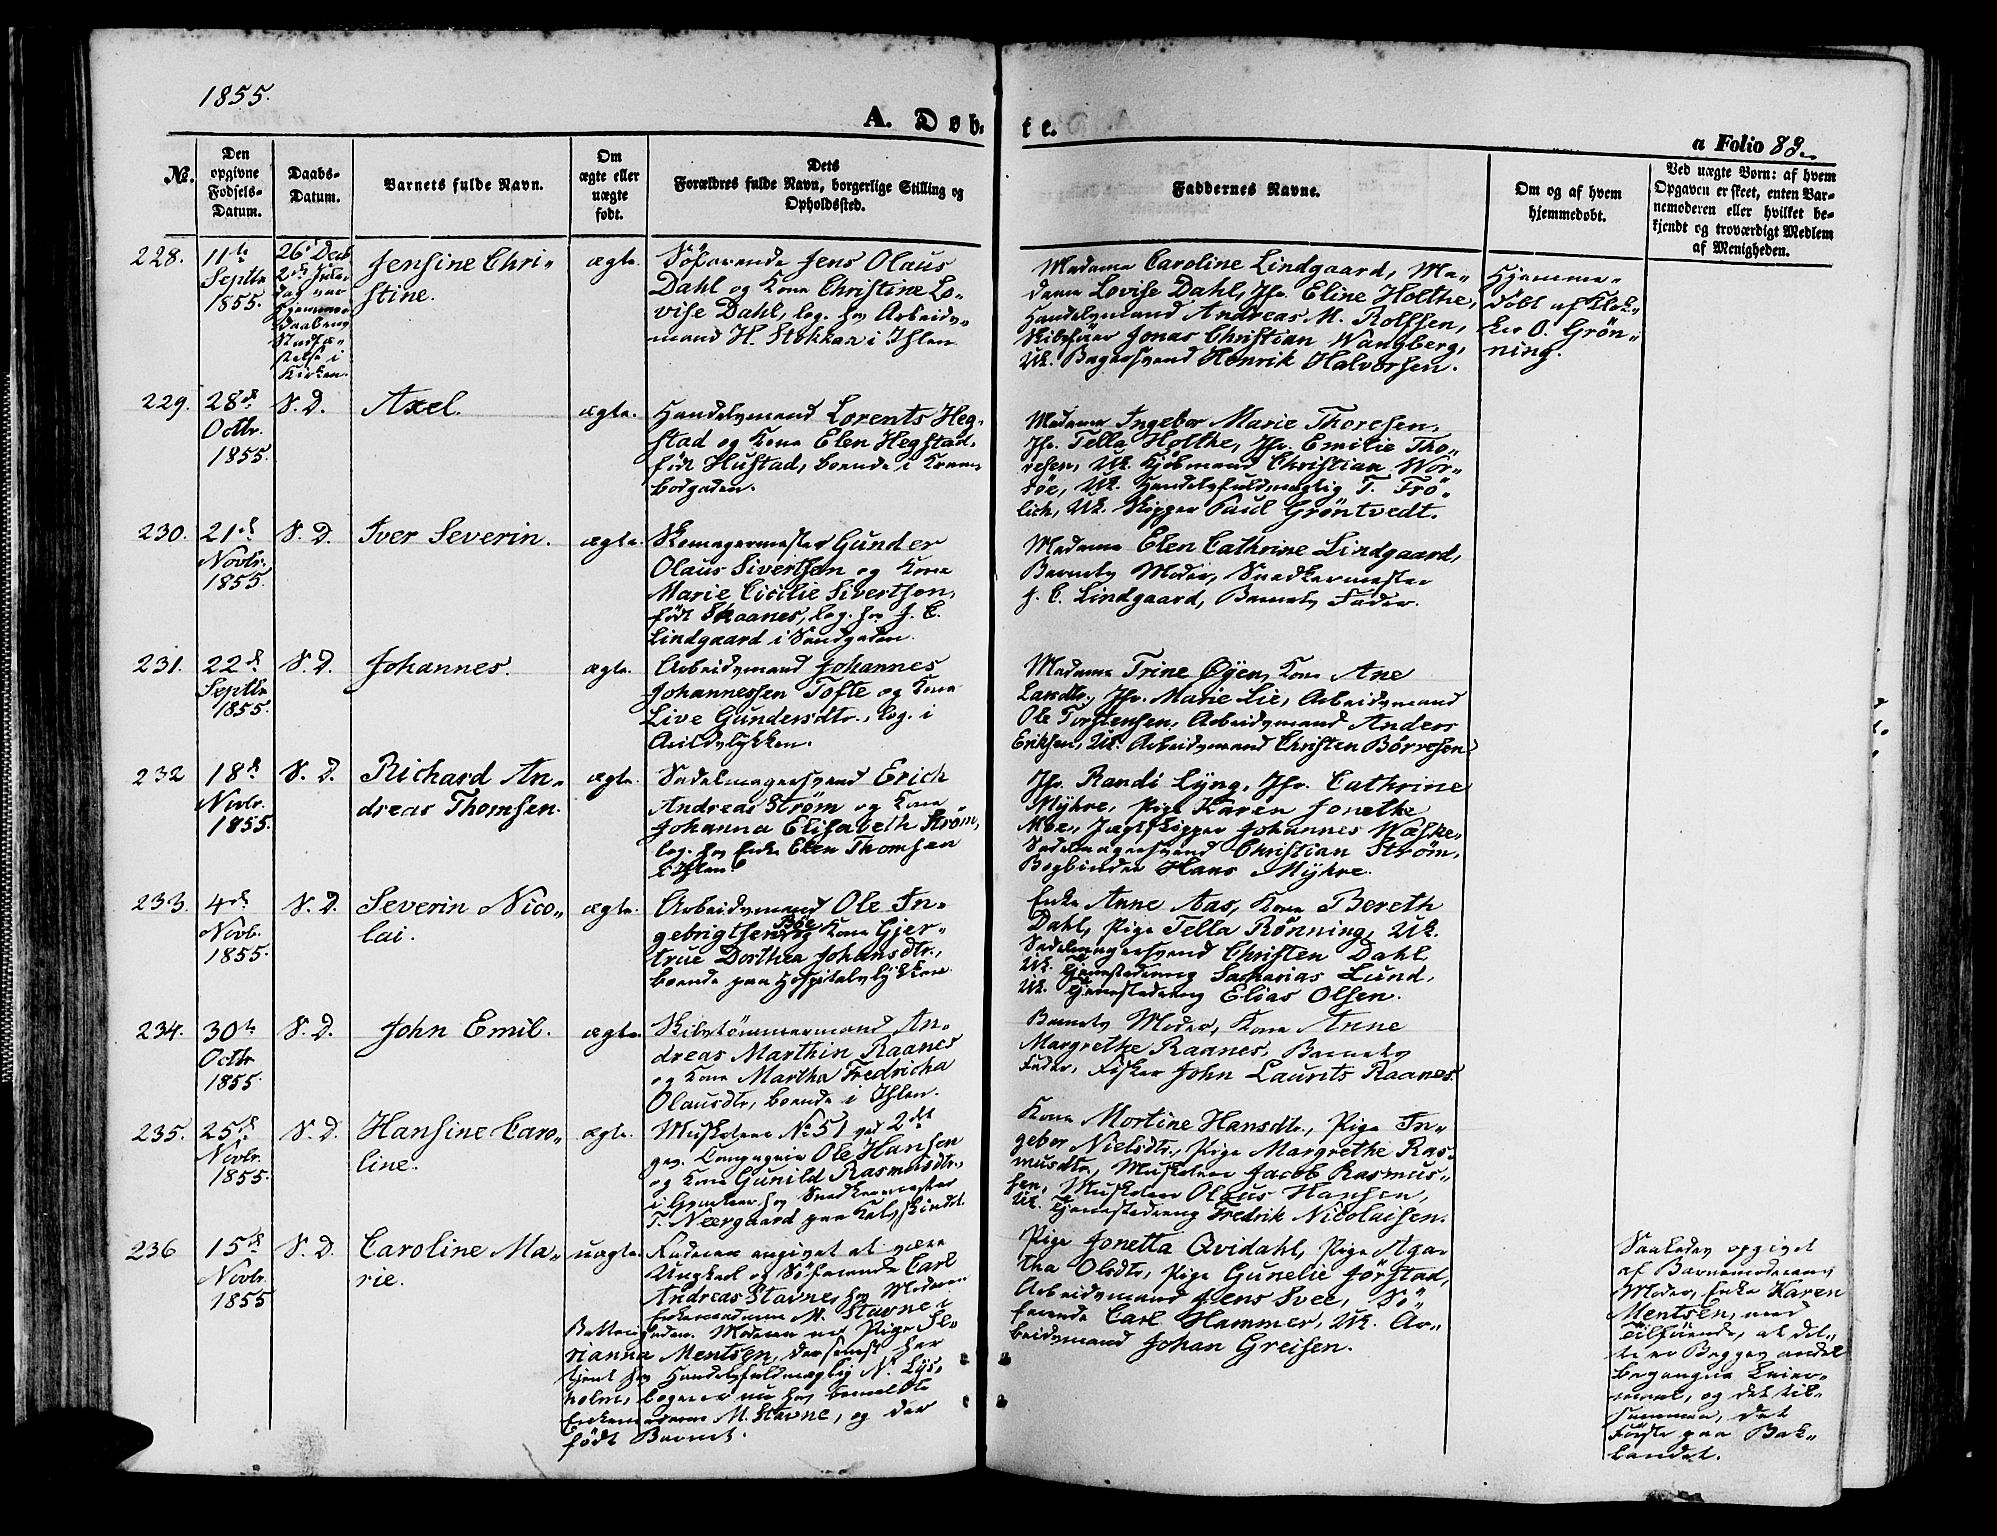 1855.
A. Døb-
te.
a Folio 83.
No.
Den
opgivne
Fødsels-
Datum.
Daabs-
Datum.
Barnets fulde Navn.
Om
ægte eller
uægte
født.
Dets
Forældres fulde Navn, borgerlige Stilling og
Opholdssted.
Faddernes Navne.
Om og af hvem
hjemmedøbt.
Ved uægte Børn: af hvem
Opgaven er skeet, enten Bar-
nemoderen eller hvilket be-
kjendt og troværdigt Medlem
af Menigheden.
228.
11te
Septbr
1855.
26' Decb
2den Jule-
dag var
Hjemme-
Daabens
Stadfæ-
stelse i
Kirken.
Jensine Chri-
stine.
ægte.
Söfarende Jens Olaus
Dahl og Kone Christine Lo-
vise Dahl, log. hos Arbeids-
mand H. Stokkan i Ihlen
Madame Caroline Lindgaard, Ma-
dame Lovise Dahl, Jfr. Eline Holthe,
Handelsmand Andreas M. Rolfsen,
Skibsfører Jonas Christian Wangberg,
Uk. Bagersvend Henrik Halvorsen.
Hjemme-
döbt af Klok-
ker O. Grön-
ning.
229.
28de
Octbr.
1855.
S. D.
Axel.
ægte.
Handelsmand Lorents Heg-
stad og Kone Elen Hegstad,
født Hustad, boende i Kram-
bodgaden.
Madame Ingebor Marie Thoresen,
Jfr. Tella Holthe, Jfr. Emilie Tho-
resen, Uk. Kjöbmand Christian Wor-
söe, Uk. Handelsfuldmægtig T. Frö-
lich, Uk. Skipper Paul Gröntvedt.
230.
21de
Novbr.
1855.
S. D.
Iver Severin.
ægte.
Skomagermester Gunder
Olaus Sivertsen og Kone
Marie Cicilie Sivertsen,
født Skaanes, log. hos J. C.
Lindgaard i Sandgaden.
Madame Elen Cathrine Lindgaard,
Barnets Moder, Snedkermester
J. C. Lindgaard, Barnets Fader.
231.
22de
Septbr
1855.
S. D.
Johannes.
ægte.
Arbeidsmand Johannes
Johannessen Tofte og Kone
Live Gundersdtr., log. i
Avildslykken.
Madame Trine Öyen, Kone Ane
Larsdtr., Jfr. Marie Lie, Arbeidsmand
Ole Torstensen, Arbeidsmand Anders
Eriksen, Uk. Arbeidsmand Christen Börresen.
232
18de
Novbr.
1855.
S. D.
Richard An-
dreas Thomsen.
ægte.
Sadelmagersvend Erich
Andreas Strøm og Kone
Johanna Elisabeth Strøm,
log. hos Enke Elen Thomsen
i Ihlen.
Jfr. Randi Lyng, Jfr. Cathrine
Myhre, Pige Karen Jonethe
Moe, Jægtskipper Johannes Wæske,
Sadelmagersvend Christian Strøm,
Bogbinder Hans Myhre.
233.
4de
Novb.
1855.
S. D.
Severin Nico-
lai.
ægte.
Arbeidsmand Ole In-
gebrigtsen Böe og Kone Gjer-
true Dorthea Johansdtr.,
boende paa Hospitalslykken.
Enke Anne Aas, Kone Bereth
Dahl, Pige Tella Rönning, Uk.
Sadelmagersvend Christen Dahl,
Uk. Tjenestedreng Sacharias Lund,
Uk. Tjenestedreng Elias Olsen.
234.
30te
Octbr
1855.
S. D.
John Emil.
ægte.
Skibstömmermand An-
dreas Marthin Raanes
og Kone Martha Fredricha
Olausdtr, boende i Ihlen.
Barnets Moder, Kone Anne
Margrethe Raanes, Barnets
Fader, Fisker John Laurits Raanes.
235.
25de
Novbr.
1855.
S. D.
Hansine Caro-
line.
ægte.
Musketeer No 51 ved 2det
gev. Compagnie Ole Hansen
og Kone Gunild Rasmusdtr.,
i Qvarteer hos Snedkermester
T. Neergaard paa Kalvskindet.
Kone Mortine Hansdtr., Pige In-
gebor Nielsdtr., Pige Margrethe Ras-
musdtr, Musketeer Jacob Rasmus-
sen, Musketeer Olaus Hansen,
Uk. Tjenestedreng Fredrik Nicolaisen.
236
15de
Novbr.
1855
S. D.
Caroline Ma-
rie.
uægte.
Faderen angivet at være
Ungkarl og Söfarende Carl
Andreas Stavne, hos Moderen
Enkemadame M. Stavne i
Bakkegaden. Moderen er Pige Jo-
hanna Mentsen, der senest har
tjent hos Handelsfuldmægtig N. Lys-
holm, logerer nu hos bemeldte
Enkemadame M. Stavne, og der
født Barnet.
Pige Jonetta Qvidahl, Pige Aga-
tha Olsdtr, Pige Gunelie Jörstad,
Arbeidsmand Jens Svee, Sö-
farende Carl Hammer, Uk. Ar-
beidsmand Johan Greisen.
Saaledes opgivet
af Barnemoderens
Moder, Enke Karen
Mentsen, med
Tilföiende, at det-
te er Begges andet
begangne Leier-
maal, og det til-
sammen, det
Förste paa Bak-
landet.